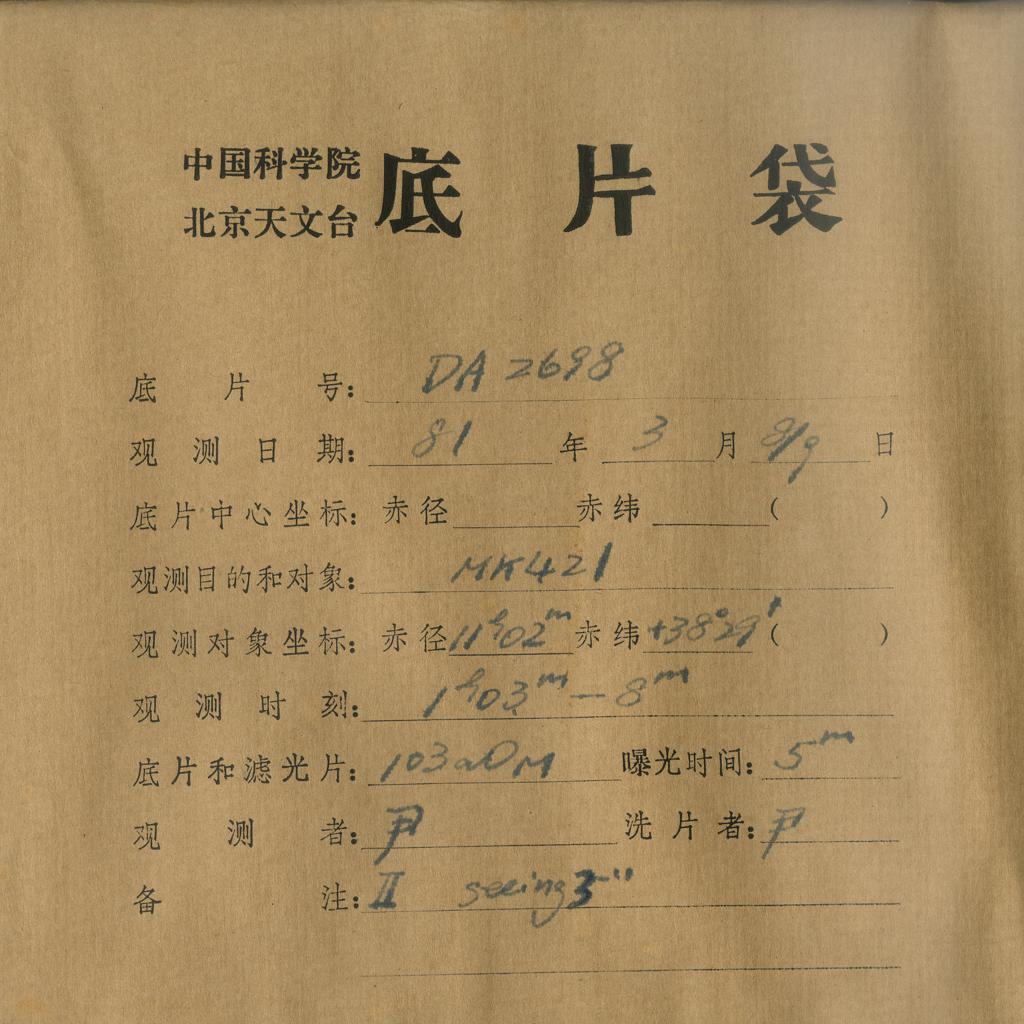 中国科学院
北京天文台
底片袋
底片号: DA 2698
观测日期: 81年 3月 8/9日
底片中心坐标: 赤径 赤纬 ( )
观测目的和对象: MK421
观测对象坐标: 赤径 11h02m 赤纬 +38°29′ ( )
观测时刻: 1h03m—8m
底片和滤光片: 103aO M 曝光时间: 5m
观测者: 尹 洗片者: 尹
备注: II seeing 3"